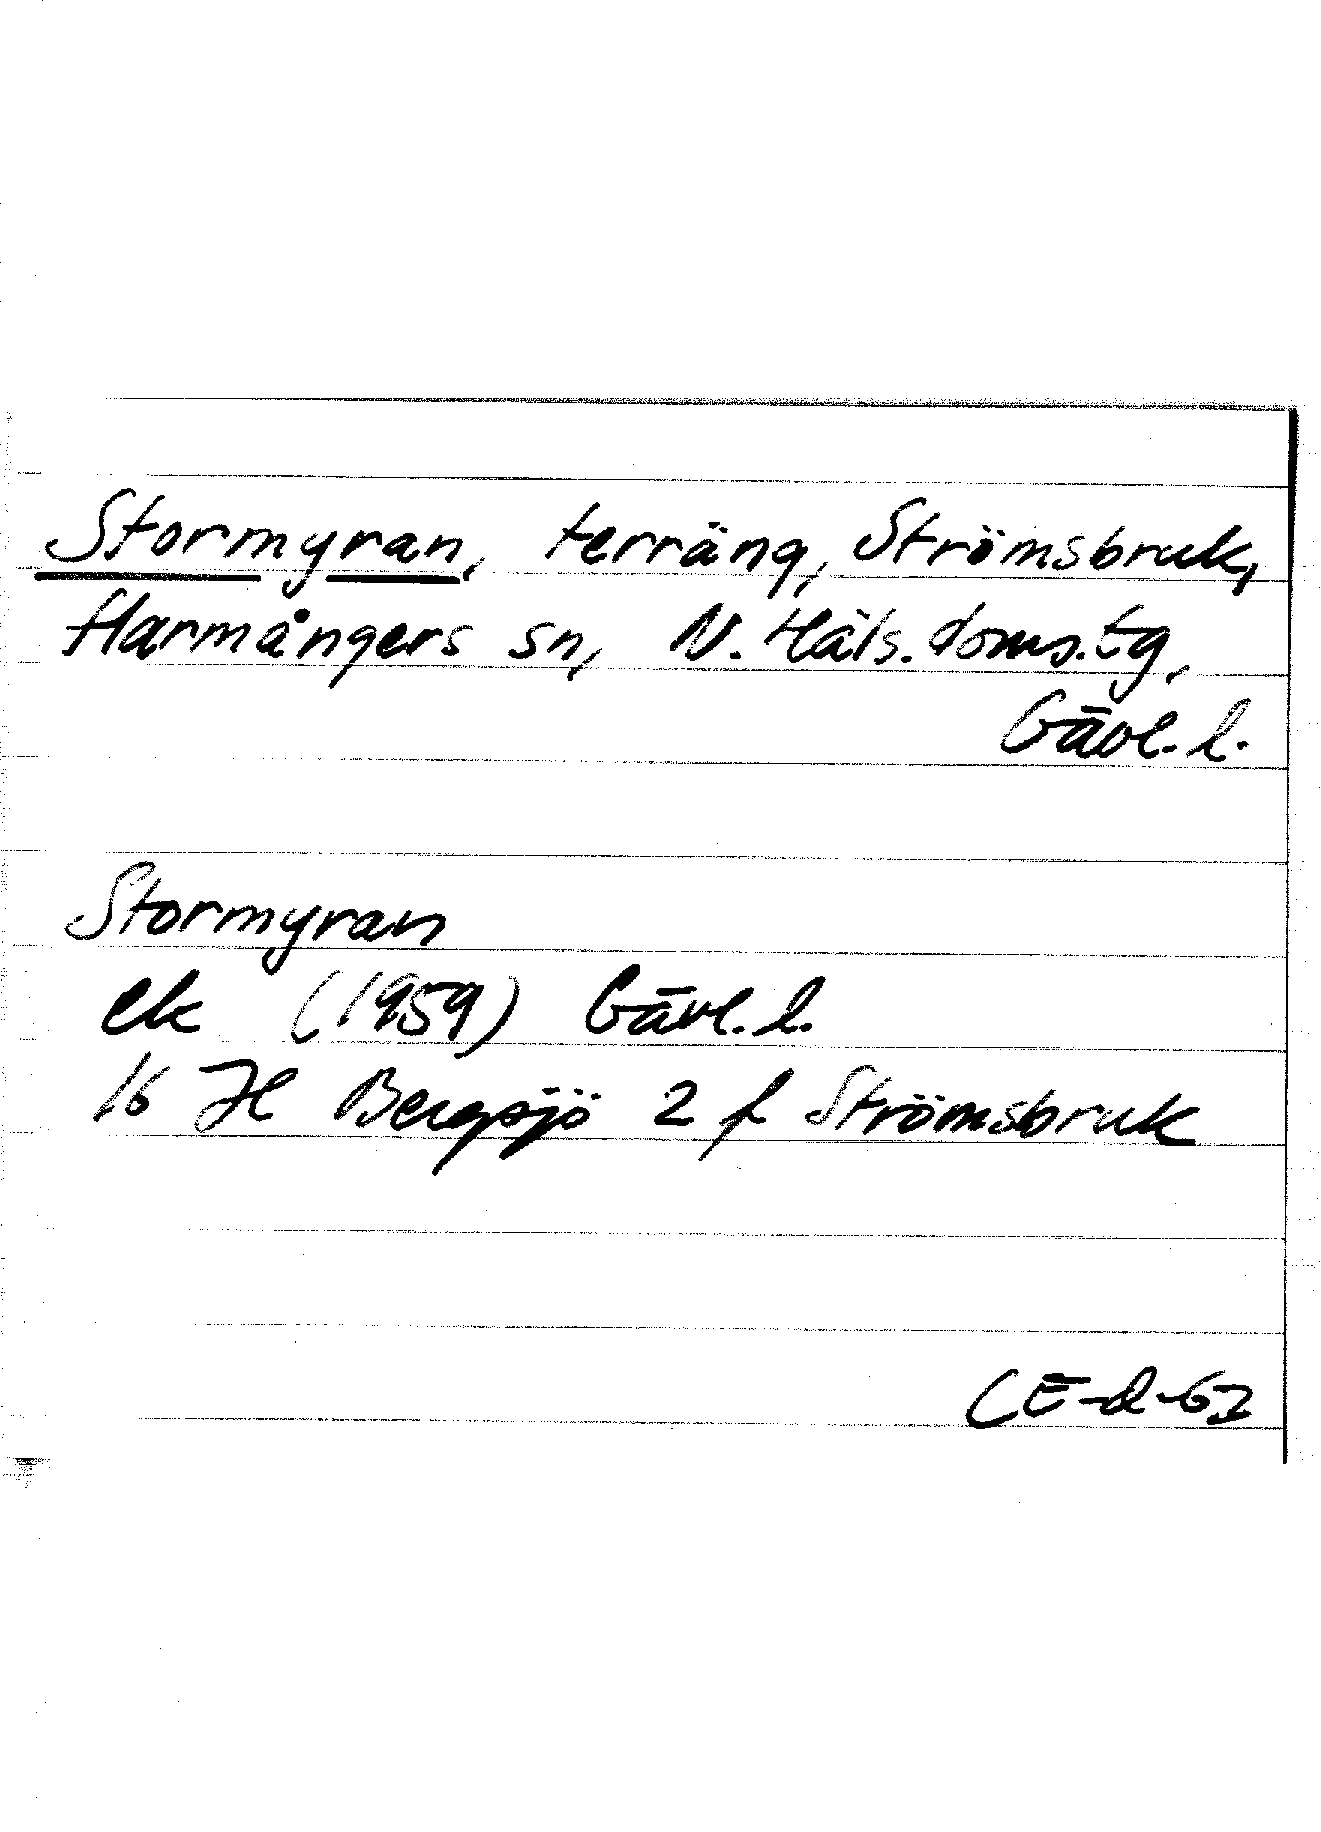 Stormyran, terräng, Strömsbruk,
Harmångers sn, N. Häls. doms.tg,
Gävl. l.
Stormyran
ek (1959) Gävl. l.
16 H Bergsjö 2 f Strömsbruk
CE-d-62